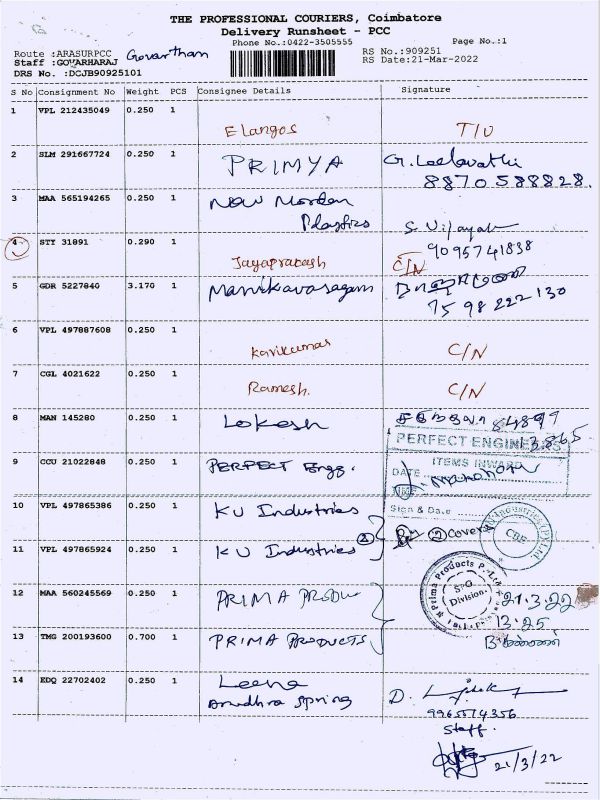 THE PROFESSIONAL COURIERS, Coimbatore
Delivery Runsheet - PCC
Phone No.:0422-3505555
Page No.:1
Route :ARASURPCC
Govarthan
RS No.:909251
Staff :GOVARHARAJ
RS Date:21-Mar-2022
DRS No. :DCJB90925101
S No Consignment No Weight PCS Consignee Details Signature
1 VPL 212435049 0.250 1
Elangos T/U
2 SLM 291667724 0.250 1 PRIMYA G. Leelavathi
8870588828.
3 MAA 565194265 0.250 1 New Morden
Plastics S. Vijayal
4 STY 31891 0.290 1 9095741838
Jayaprakash C/N
5 GDR 5227840 3.170 1 Manikavasagam
75 98 222 130
6 VPL 497887608 0.250 1
Kavikumar C/N
7 CGL 4021622 0.250 1
Ramesh. C/N
8 MAN 145280 0.250 1 Lokesh 84899
13865
PERFECT ENGINEERS
ITEMS INWARD
9 CCU 21022848 0.250 1 PERFECT Engg. DATE
TIME
Sign & Date
10 VPL 497865386 0.250 1 KU Industries
② By ② Cover
11 VPL 497865924 0.250 1 KU Industries
CBE
Prima Products P. Ltd
SPG
Division
12 MAA 560245569 0.250 1 PRIMA PRODU 21.3.22
13.25
13 TMG 200193600 0.700 1 PRIMA PRODUCTS
14 EDQ 22702402 0.250 1 Leena
Andhra Spring D.
9965574356
Staff.
21/3/22